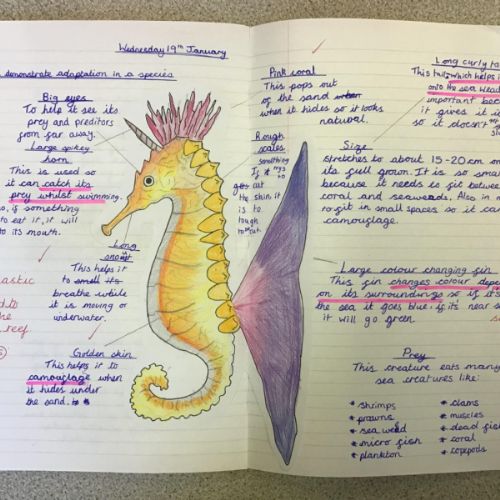 Wednesday 19th January
demonstrate adaptation in a species
Big eyes
To help it see its
prey and preditors
from far away.
Large spikey
horn
This is used so
it can catch its
prey whilst swimming.
so, if something
to eat it, it will
to its mouth.
Long
snout
This helps it
to small its
breathe while
it is moving or
underwater.
Golden skin
This helps it to
camouflage when
it hides under
the sand.
Pink coral
This pops out
of the sand when
when it hides so it looks
natural.
Rough
scales
Something
If it trys to
cut
the skin it
is to
tough
to cut.
Long curly ta
This tail which helps
onto the sea weed
important beca
it gives it
so it doesn't
Size
stretches to about 15-20 cm on
its full grown. It is so small
because it needs to fit between
coral and seaweeds. Also in
to fit in small spaces so it ca
camouflage.
Large colour changing fin
This fin changes colour depe
on its surroundings so if it's
the sea it goes blue. if it's near s
it will go green.
Prey
This creature eats many
sea creatures like:
* shrimps
* prawns
* sea weed
* micro fish
* plankton
* clams
* muscles
* dead fish
* coral
* copepods
astic
d to
the
reef